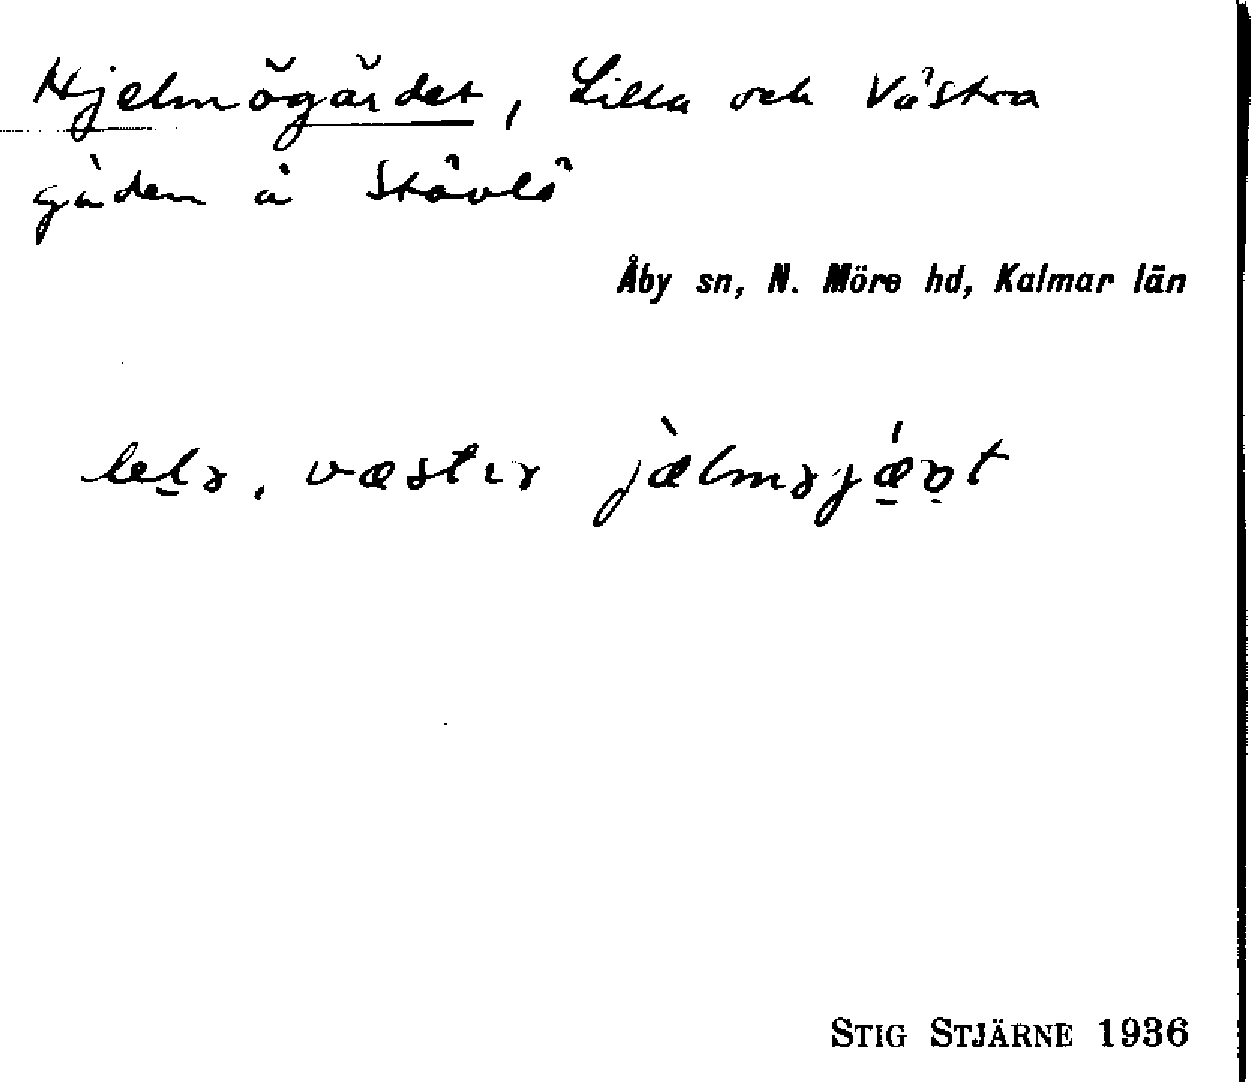 Hjelmögärdet, Lilla och Västra
gården å Stävlö
Åby sn, N. Möre hd, Kalmar län
väster
STIG STJÄRNE 1936